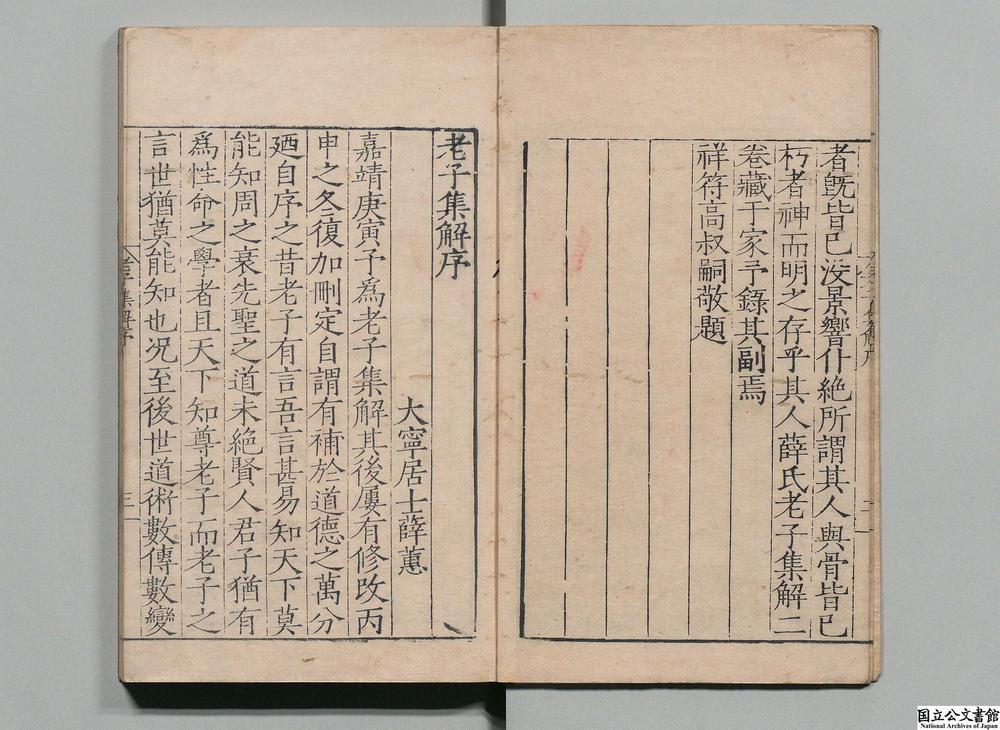 者旣皆已沒景響什絶所謂其人與骨皆已
朽者神而明之存乎其人薛氏老子集解二
卷藏于家予錄其副焉
祥符高叔嗣敬題
老子集解序
大寧居士薛蕙
嘉靖庚寅予爲老子集解其後屢有修改丙
申之冬復加刪定自謂有補於道德之萬分
廼自序之昔老子有言吾言甚易知天下莫
能知周之衰先聖之道未絶賢人君子猶有
爲性命之學者且天下知尊老子而老子之
言世猶莫能知也况至後世道術數傳數變
老子集解序
三
国立公文書館
National Archives of Japan